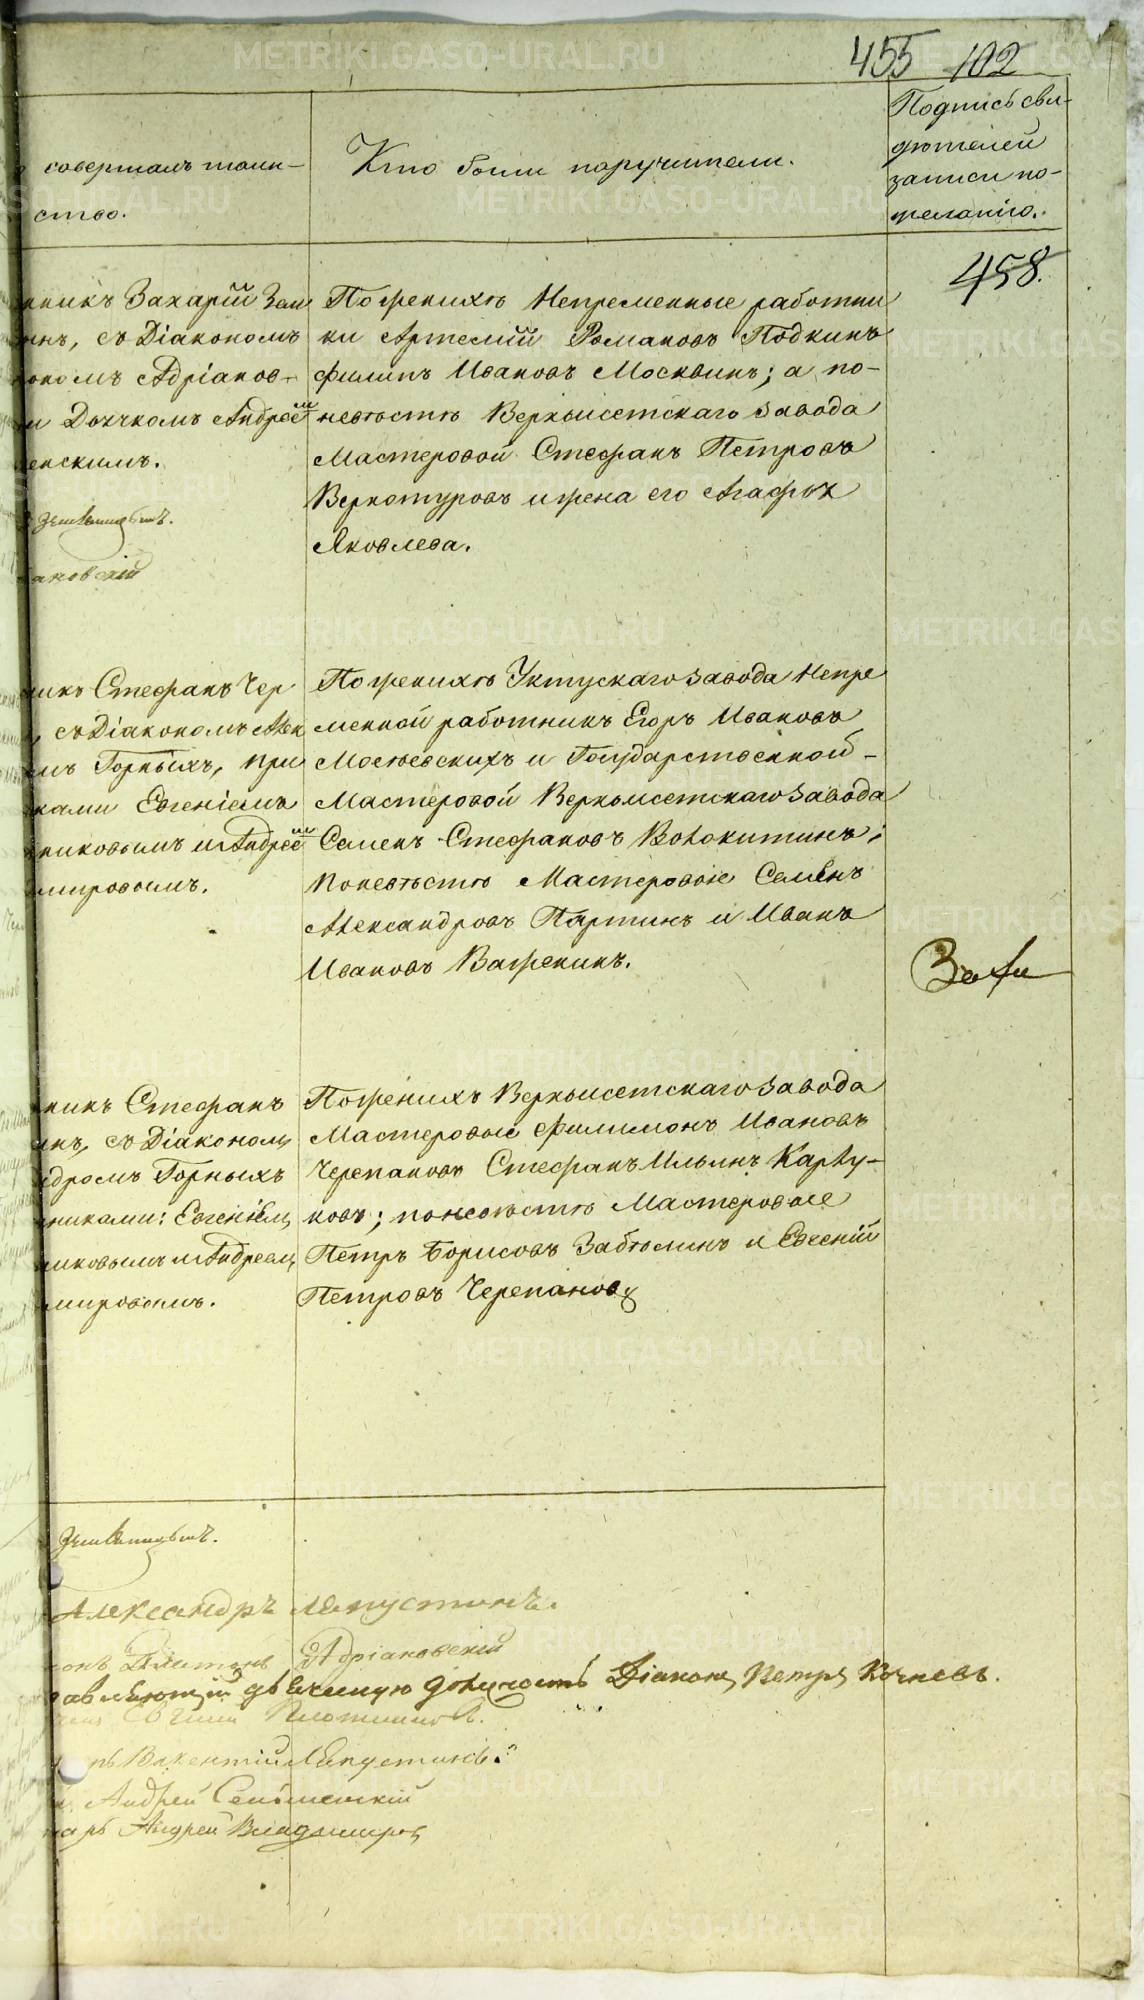 455 102
совершалъ таин-
ство.
Кто были поручители.
Подпись сви-
дѣтелей
записи по-
желанію.
458.
никъ Захарій Зам
инъ, съ Діакономъ
Адріанов-
и Дьячкомъ Андрее
енскимъ.
ановскій
По женихѣ Непременные работни
ки Артемій Романовъ Подкинъ
Филипъ Ивановъ Москвинъ; а по-
невѣстѣ Верхъисетскаго завода
Мастеровой Стефанъ Петровъ
Верхотуровъ и жена его Агафья
Яковлева.
никъ Стефанъ Чер
съ Діакономъ Алек
мъ Горныхъ, при
ками Евгеніемъ
никовымъ и Андрее
мировымъ.
По женихѣ Уктускаго завода Непре
менной работникъ Егоръ Ивановъ
и Государственной
Мастеровой Верхъисетскаго завода
Семенъ Стефановъ Волокитинъ;
по невѣстѣ Мастеровые Семенъ
Александровъ Партинъ и Иванъ
Ивановъ Важенинъ.
никъ Стефанъ
инъ, съ Діакономъ
ндромъ Горныхъ
никами: Евгеніемъ
никовымъ и Андреемъ
мировымъ.
По женихѣ Верхъисетскаго завода
Мастеровые Филимонъ Ивановъ
Черепановъ Стефанъ Ильинъ Карпу-
ковъ; по невѣстѣ Мастеровые
Петръ Борисовъ Забѣлинъ и Евгеній
Петровъ Черепановъ
Александръ Лапустинъ.
конъ Платонъ Адріановскій
равляющій дьяческую должность Діаконъ Петръ Кочневъ.
Евгеній Плотниковъ.
рь Викентій Лапустинъ.
Андрей
марь Андрей Владимировъ